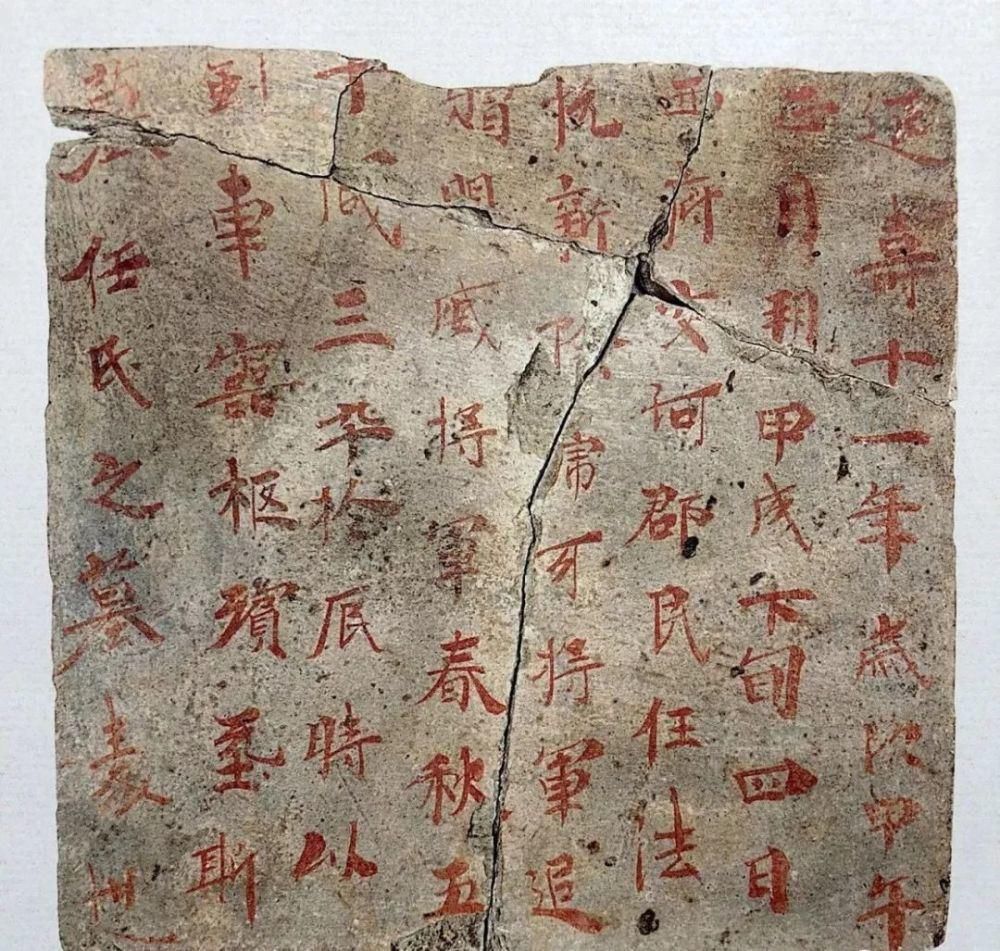 延壽十一年歲次甲午
正月朔甲戌下旬四日
西府交河郡民任法
悦新除虎牙將軍追
贈明威將軍春秋五
十咸三卒於辰時以
車靈柩殯葬斯
墓任氏之墓表